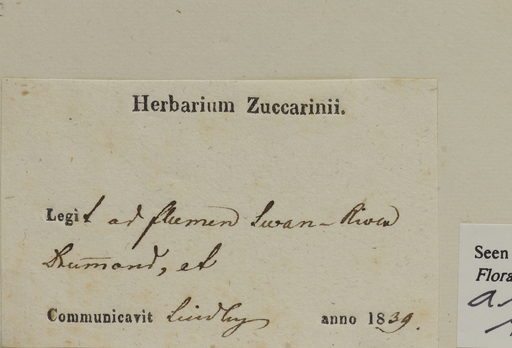 Herbarium Zuccarinii.
Legit ad flumen Swan-River
Drum̅ond, et
Communicavit Lindley anno 1839.
Seen
Flora